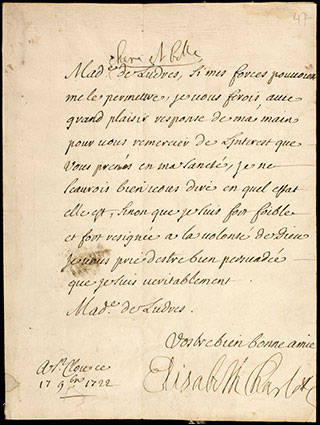 47
chere et belle
Mad.e de Ludres, Si mes forces pouvoient
me le permettre, je vous ferois, avec
grand plaisir response de ma main
pour vous remercier de L'interest que
Vous prenés en ma santé, je ne
scaurois bien vous dire en quel estat
elle est, sinon que je suis fort foible
et fort resignée a la volonté de Dieu
je vous prie destre bien persuadée
que je suis veritablement
Mad.e de Ludres.
Vostre bien bonne amie
A St. Clou ce
17 9bre 1722
Elisabeth Charlotte